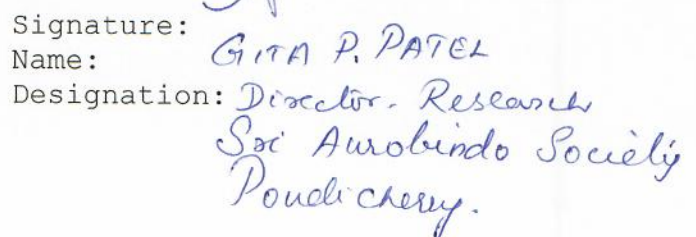 Signature:
Name: GITA P. PATEL
Designation: Director. Research
Sri Aurobindo Society
Pondicherry.